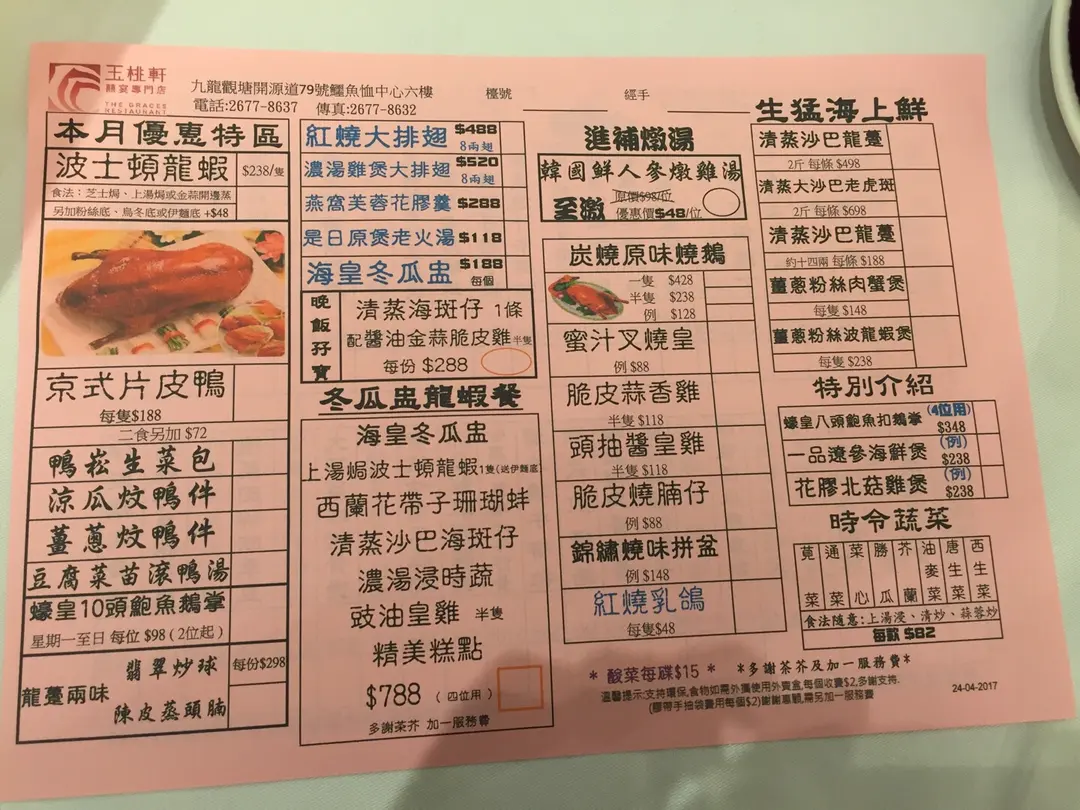 玉桃軒
囍宴專門店
THE GRACES
RESTAURANT
九龍觀塘開源道79號鱷魚恤中心六樓
電話:2677-8637 傳真:2677-8632
檯號
經手
本月優惠特區
波士頓龍蝦 $238/隻
食法：芝士焗、上湯焗或金蒜開邊蒸
另加粉絲底、烏冬底或伊麵底 +$48
京式片皮鴨
每隻$188
二食另加 $72
鴨崧生菜包
涼瓜炆鴨件
薑蔥炆鴨件
豆腐菜苗滾鴨湯
蠔皇10頭鮑魚鵝掌
星期一至日 每位 $98 ( 2位起 )
龍躉兩味
翡翠炒球
陳皮蒸頭腩
每份$298
紅燒大排翅 $488
8兩翅
濃湯雞煲大排翅 $520
8兩翅
燕窩芙蓉花膠羹 $288
是日原煲老火湯 $118
海皇冬瓜盅 $188
每個
晚飯孖寶
清蒸海斑仔 1條
配醬油金蒜脆皮雞 半隻
每份 $288
冬瓜盅龍蝦餐
海皇冬瓜盅
上湯焗波士頓龍蝦1隻(送伊麵底
西蘭花帶子珊瑚蚌
清蒸沙巴海斑仔
濃湯浸時蔬
豉油皇雞 半隻
精美糕點
$788 ( 四位用 )
多謝茶芥 加一服務費
進補燉湯
韓國鮮人參燉雞湯
至激
原價$98/位
優惠價$48/位
炭燒原味燒鵝
一隻 $428
半隻 $238
例 $128
蜜汁叉燒皇
例 $88
脆皮蒜香雞
半隻 $118
頭抽醬皇雞
半隻 $118
脆皮燒腩仔
例 $88
錦繡燒味拼盆
例 $148
紅燒乳鴿
每隻$48
生猛海上鮮
清蒸沙巴龍躉
2斤 每條 $498
清蒸大沙巴老虎斑
2斤 每條 $698
清蒸沙巴龍躉
約十四兩 每條 $188
薑蔥粉絲肉蟹煲
每隻 $148
薑蔥粉絲波龍蝦煲
每隻 $238
特別介紹
蠔皇八頭鮑魚扣鵝掌 (4位用)
$348
一品遼參海鮮煲 (例)
$238
花膠北菇雞煲 (例)
$238
時令蔬菜
莧菜
通菜
菜心
勝瓜
芥蘭
油麥菜
唐生菜
西生菜
食法隨意:上湯浸、清炒、蒜蓉炒
每款 $82
* 酸菜每碟$15 * *多謝茶芥及加一服務費*
溫馨提示:支持環保,食物如需外攜使用外賣盒,每個收費$2,多謝支持.
(膠帶手抽袋費用每個$2)謝謝惠顧,需另加一服務費
24-04-2017